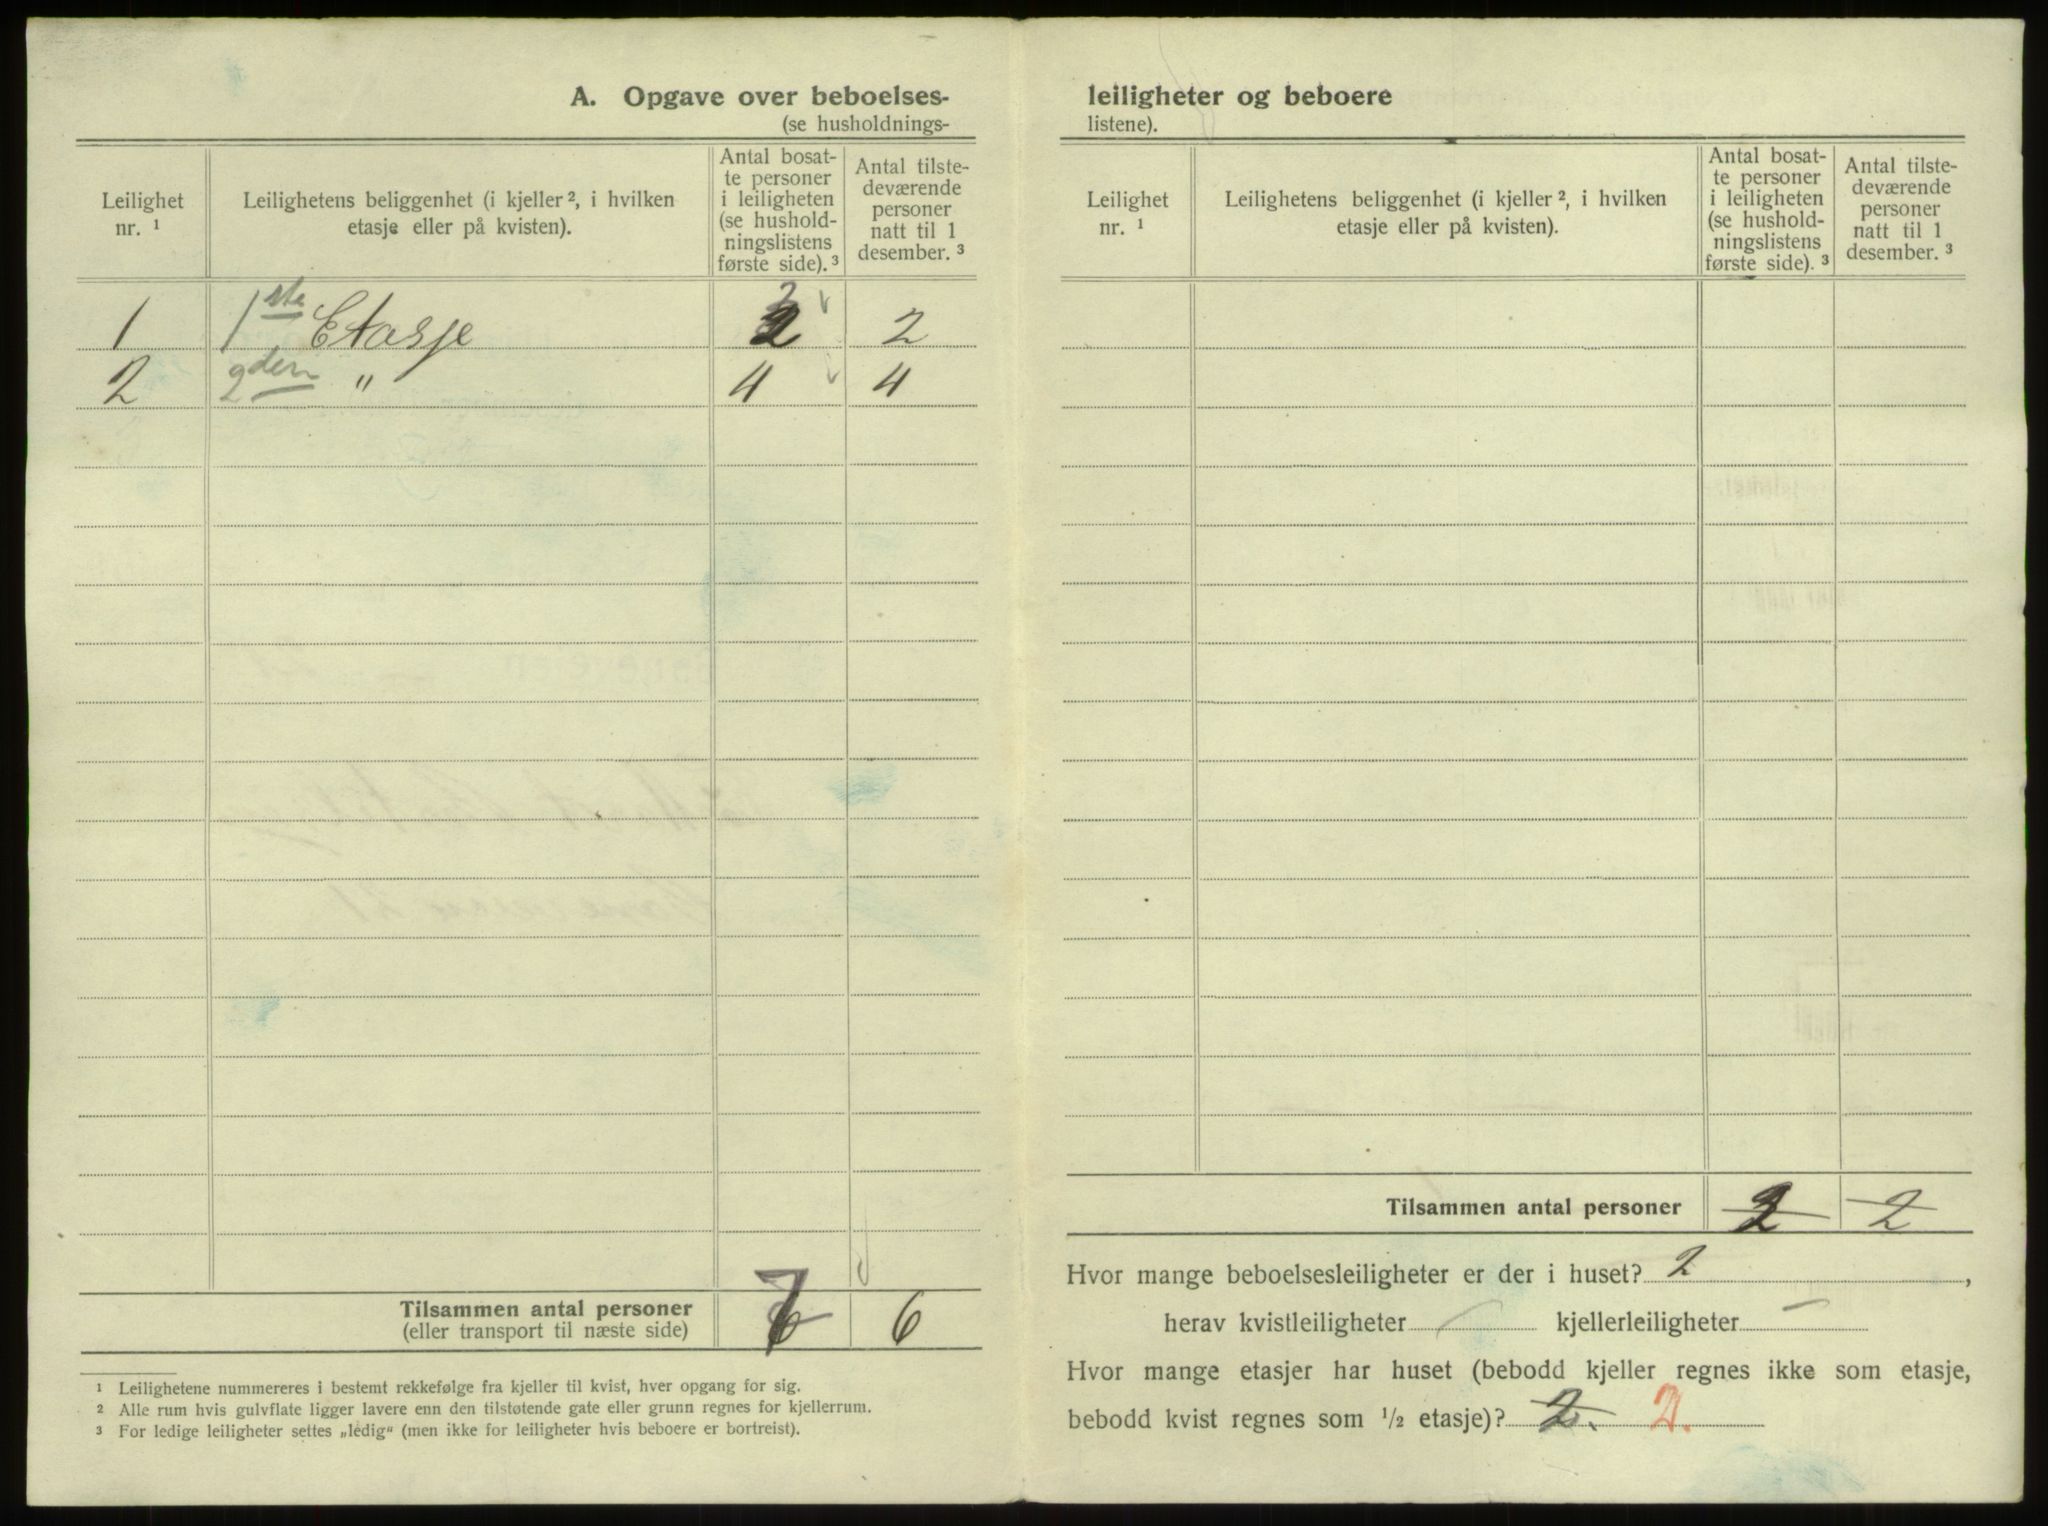 A. Opgave over beboelses-
(se husholdnings-
Leilighet nr. ¹
Leilighetens beliggenhet (i kjeller ², i hvilken etasje eller på kvisten).
Antal bosatte personer i leiligheten (se husholdningslistens første side). ³
Antal tilstedeværende personer natt til 1 desember. ³
1 1ste Etasje 2 2
2 2den " 4 4
Tilsammen antal personer 6
(eller transport til næste side)
¹ Leilighetene nummereres i bestemt rekkefølge fra kjeller til kvist, hver opgang for sig.
² Alle rum hvis gulvflate ligger lavere enn den tilstøtende gate eller grunn regnes for kjellerrum.
³ For ledige leiligheter settes „ledig“ (men ikke for leiligheter hvis beboere er bortreist).
leiligheter og beboere
listene).
Leilighet nr. ¹
Leilighetens beliggenhet (i kjeller ², i hvilken etasje eller på kvisten).
Antal bosatte personer i leiligheten (se husholdningslistens første side). ³
Antal tilstedeværende personer natt til 1 desember. ³
Tilsammen antal personer 2 2
Hvor mange beboelsesleiligheter er der i huset? 2 ,
herav kvistleiligheter — kjellerleiligheter —
Hvor mange etasjer har huset (bebodd kjeller regnes ikke som etasje,
bebodd kvist regnes som ½ etasje)? 2. 2.